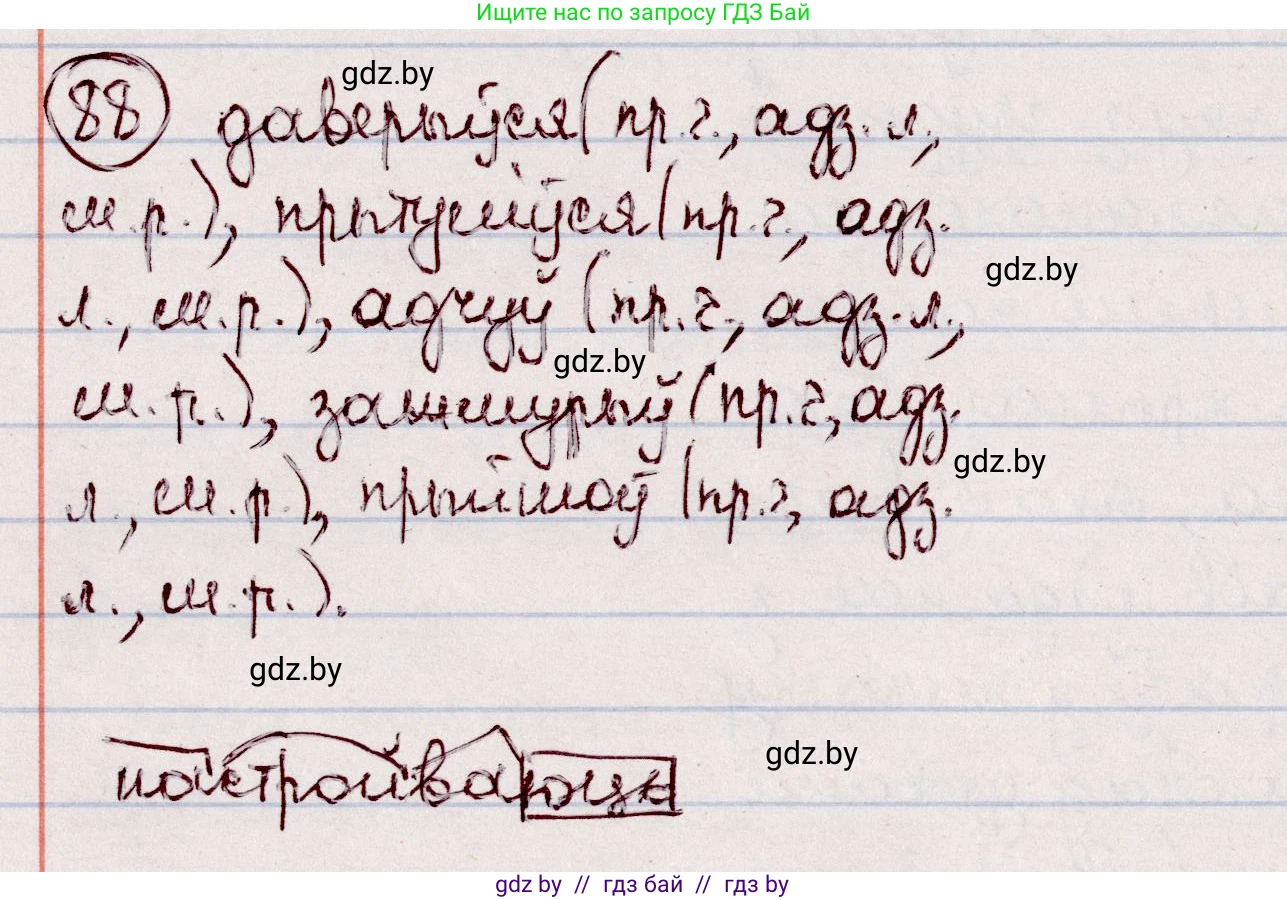 Ищите нас по запросу ГДЗ Бай
gdz.by
88 даверыўся (пр.г., адз. л.,
м.р.), прытуліўся (пр.г., адз.
gdz.by
л., м.р.), адчуў (пр.г., адз. л.,
gdz.by
м.р.), зажмурыў (пр.г, адз.
gdz.by
л., м.р.), прыйшоў (пр.г, адз.
л., м.р.).
gdz.by
gdz.by
настройваюць
gdz by // гдз бай // гдз by